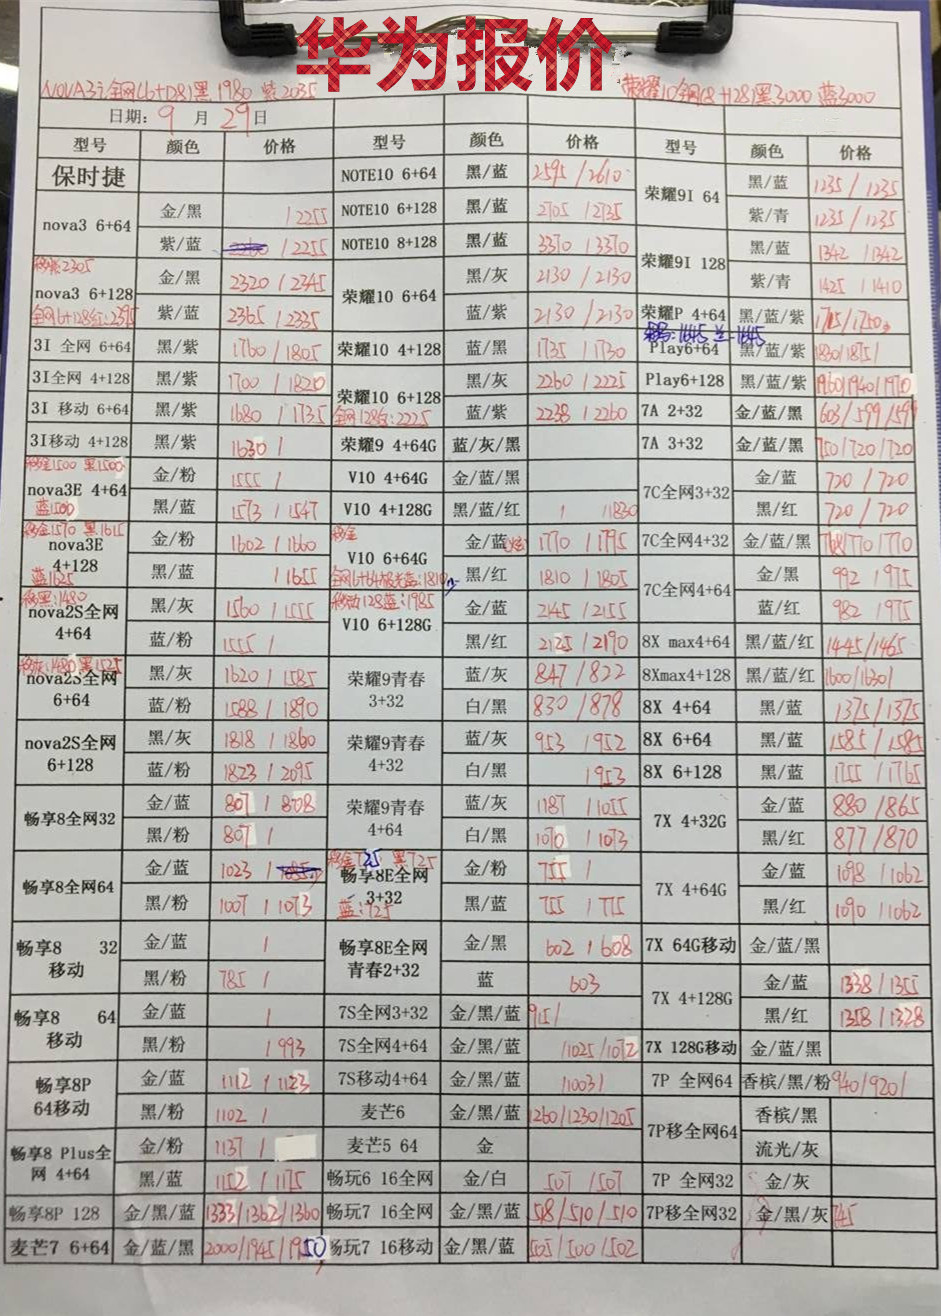 华为报价
NOVA3i全网(6+128)黑1980 紫2035 荣耀10全网(8+128)黑3000 蓝3000
日期: 9 月 29 日
型号 颜色 价格 型号 颜色 价格 型号 颜色 价格
保时捷 NOTE10 6+64 黑/蓝 2595 /2610 荣耀9I 64 黑/蓝 1235 / 1235
nova3 6+64 金/黑 /2255 NOTE10 6+128 黑/蓝 2705 /2735 紫/青 1235 / 1235
紫/蓝 /2255 NOTE10 8+128 黑/蓝 3370 /3370 荣耀9I 128 黑/蓝 1342 /1342
移紫2305
nova3 6+128 金/黑 2320 /2345 荣耀10 6+64 黑/灰 2130 /2130 紫/青 1425 /1410
全网6+128红:2375 紫/蓝 2365 /2335 蓝/紫 2130 /2130 荣耀P 4+64 黑/蓝/紫 1715/1750
3I 全网 6+64 黑/紫 1760 /1805 荣耀10 4+128 蓝/黑 1735 /1730 Play6+64 黑/蓝/紫 1830/1875/
3I全网 4+128 黑/紫 1700 /1820 荣耀10 6+128 黑/灰 2260 /2225 Play6+128 黑/蓝/紫 1960/1940/1970
3I 移动 6+64 黑/紫 1680 /1735 全网128白:2225 蓝/紫 2238 /2260 7A 2+32 金/蓝/黑 603/599/599
3I移动 4+128 黑/紫 1630 / 荣耀9 4+64G 蓝/灰/黑 7A 3+32 金/蓝/黑 750/720/720
移金1500 黑1500
nova3E 4+64 金/粉 1555 / V10 4+64G 金/蓝/黑 7C全网3+32 金/蓝 720 /720
蓝1500 黑/蓝 1573 /1547 V10 4+128G 黑/蓝/红 / /1830 黑/红 720 /720
移金1570 黑1615
nova3E 4+128 金/粉 1602 /1660 V10 6+64G 金/蓝 1770 /1795 7C全网4+32 金/蓝/黑 768/770/770
蓝1625 黑/蓝 /1655 全网6+64极光蓝:1810 黑/红 1810 /1805 7C全网4+64 金/黑 992 /975
移黑:1480 移动128蓝:1985
nova2S全网 4+64 黑/灰 1560 /1555 V10 6+128G 金/蓝 2145 /2155 蓝/红 982 /975
蓝/粉 1555 / 黑/红 2125 /2190 8X max4+64 黑/蓝/红 1445/1465
移灰:1480 黑1525
nova2S全网 6+64 黑/灰 1620 /1585 荣耀9青春 3+32 蓝/灰 847 /822 8Xmax4+128 黑/蓝/红 1600/1630/
蓝/粉 1588 /1890 白/黑 830 /878 8X 4+64 黑/蓝 1375/1375
nova2S全网 6+128 黑/灰 1818 /1860 荣耀9青春 4+32 蓝/灰 953 /952 8X 6+64 黑/蓝 1585 /1585
蓝/粉 1823 /2095 白/黑 /953 8X 6+128 黑/蓝 1755 /1765
畅享8全网32 金/蓝 807 /808 荣耀9青春 4+64 蓝/灰 1187 /1055 7X 4+32G 金/蓝 880 /865
黑/粉 807 / 白/黑 1070 /1073 黑/红 877/870
移金725 黑725
畅享8全网64 金/蓝 1023 / 畅享8E全网 3+32 金/粉 755 / 7X 4+64G 金/蓝 1098 /1062
黑/粉 1007 /1073 蓝:725 黑/蓝 755 /775 黑/红 1090 /1062
畅享8 32 移动 金/蓝 / 畅享8E全网 青春2+32 金/黑 602 /608 7X 64G移动 金/蓝/黑
黑/粉 785 / 蓝 603 7X 4+128G 金/蓝 1338 /1355
畅享8 64 移动 金/蓝 / 7S全网3+32 金/黑/蓝 915/ 黑/红 1358 /1328
黑/粉 /993 7S全网4+64 金/黑/蓝 /1025 /1072 7X 128G移动 金/蓝/黑
畅享8P 64移动 金/蓝 1112 /1123 7S移动4+64 金/黑/蓝 /1003/ 7P 全网64 香槟/黑/粉 940/920/
黑/粉 1102 / 麦芒6 金/黑/蓝 1260/1230/1205 7P移全网64 香槟/黑
畅享8 Plus全网 4+64 金/粉 1137 / 麦芒5 64 金 流光/灰
黑/蓝 1152 /1175 畅玩6 16全网 金/白 507 /507 7P 全网32 金/灰
畅享8P 128 金/黑/蓝 1333/1362/1360 畅玩7 16全网 金/黑/蓝 518/510/510 7P移全网32 金/黑/灰 745
麦芒7 6+64 金/蓝/黑 2000/1945/1950 畅玩7 16移动 金/黑/蓝 505/500/502